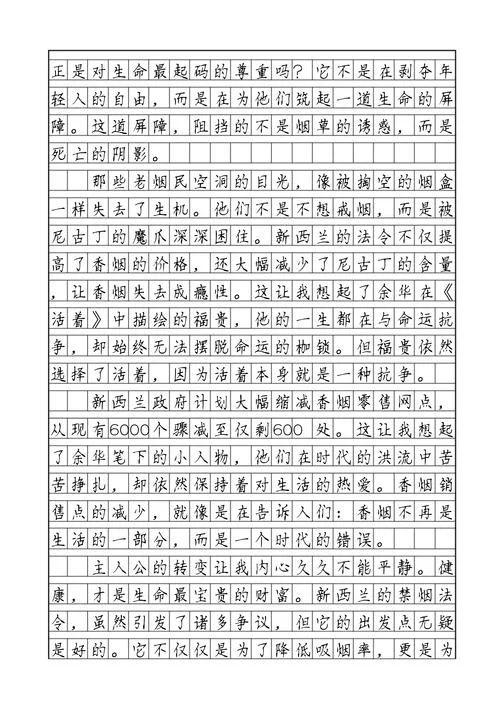 正是对生命最起码的尊重吗？它不是在剥夺年
轻人的自由，而是在为他们筑起一道生命的屏
障。这道屏障，阻挡的不是烟草的诱惑，而是
死亡的阴影。
那些老烟民空洞的目光，像被掏空的烟盒
一样失去了生机。他们不是不想戒烟，而是被
尼古丁的魔爪深深困住。新西兰的法令不仅提
高了香烟的价格，还大幅减少了尼古丁的含量
，让香烟失去成瘾性。这让我想起了余华在《
活着》中描绘的福贵，他的一生都在与命运抗
争，却始终无法摆脱命运的枷锁。但福贵依然
选择了活着，因为活着本身就是一种抗争。
新西兰政府计划大幅缩减香烟零售网点，
从现有6000个骤减至仅剩600 处。这让我想起
了余华笔下的小人物，他们在时代的洪流中苦
苦挣扎，却依然保持着对生活的热爱。香烟销
售点的减少，就像是在告诉人们：香烟不再是
生活的一部分，而是一个时代的错误。
主人公的转变让我内心久久不能平静。健
康，才是生命最宝贵的财富。新西兰的禁烟法
令，虽然引发了诸多争议，但它的出发点无疑
是好的。它不仅仅是为了降低吸烟率，更是为